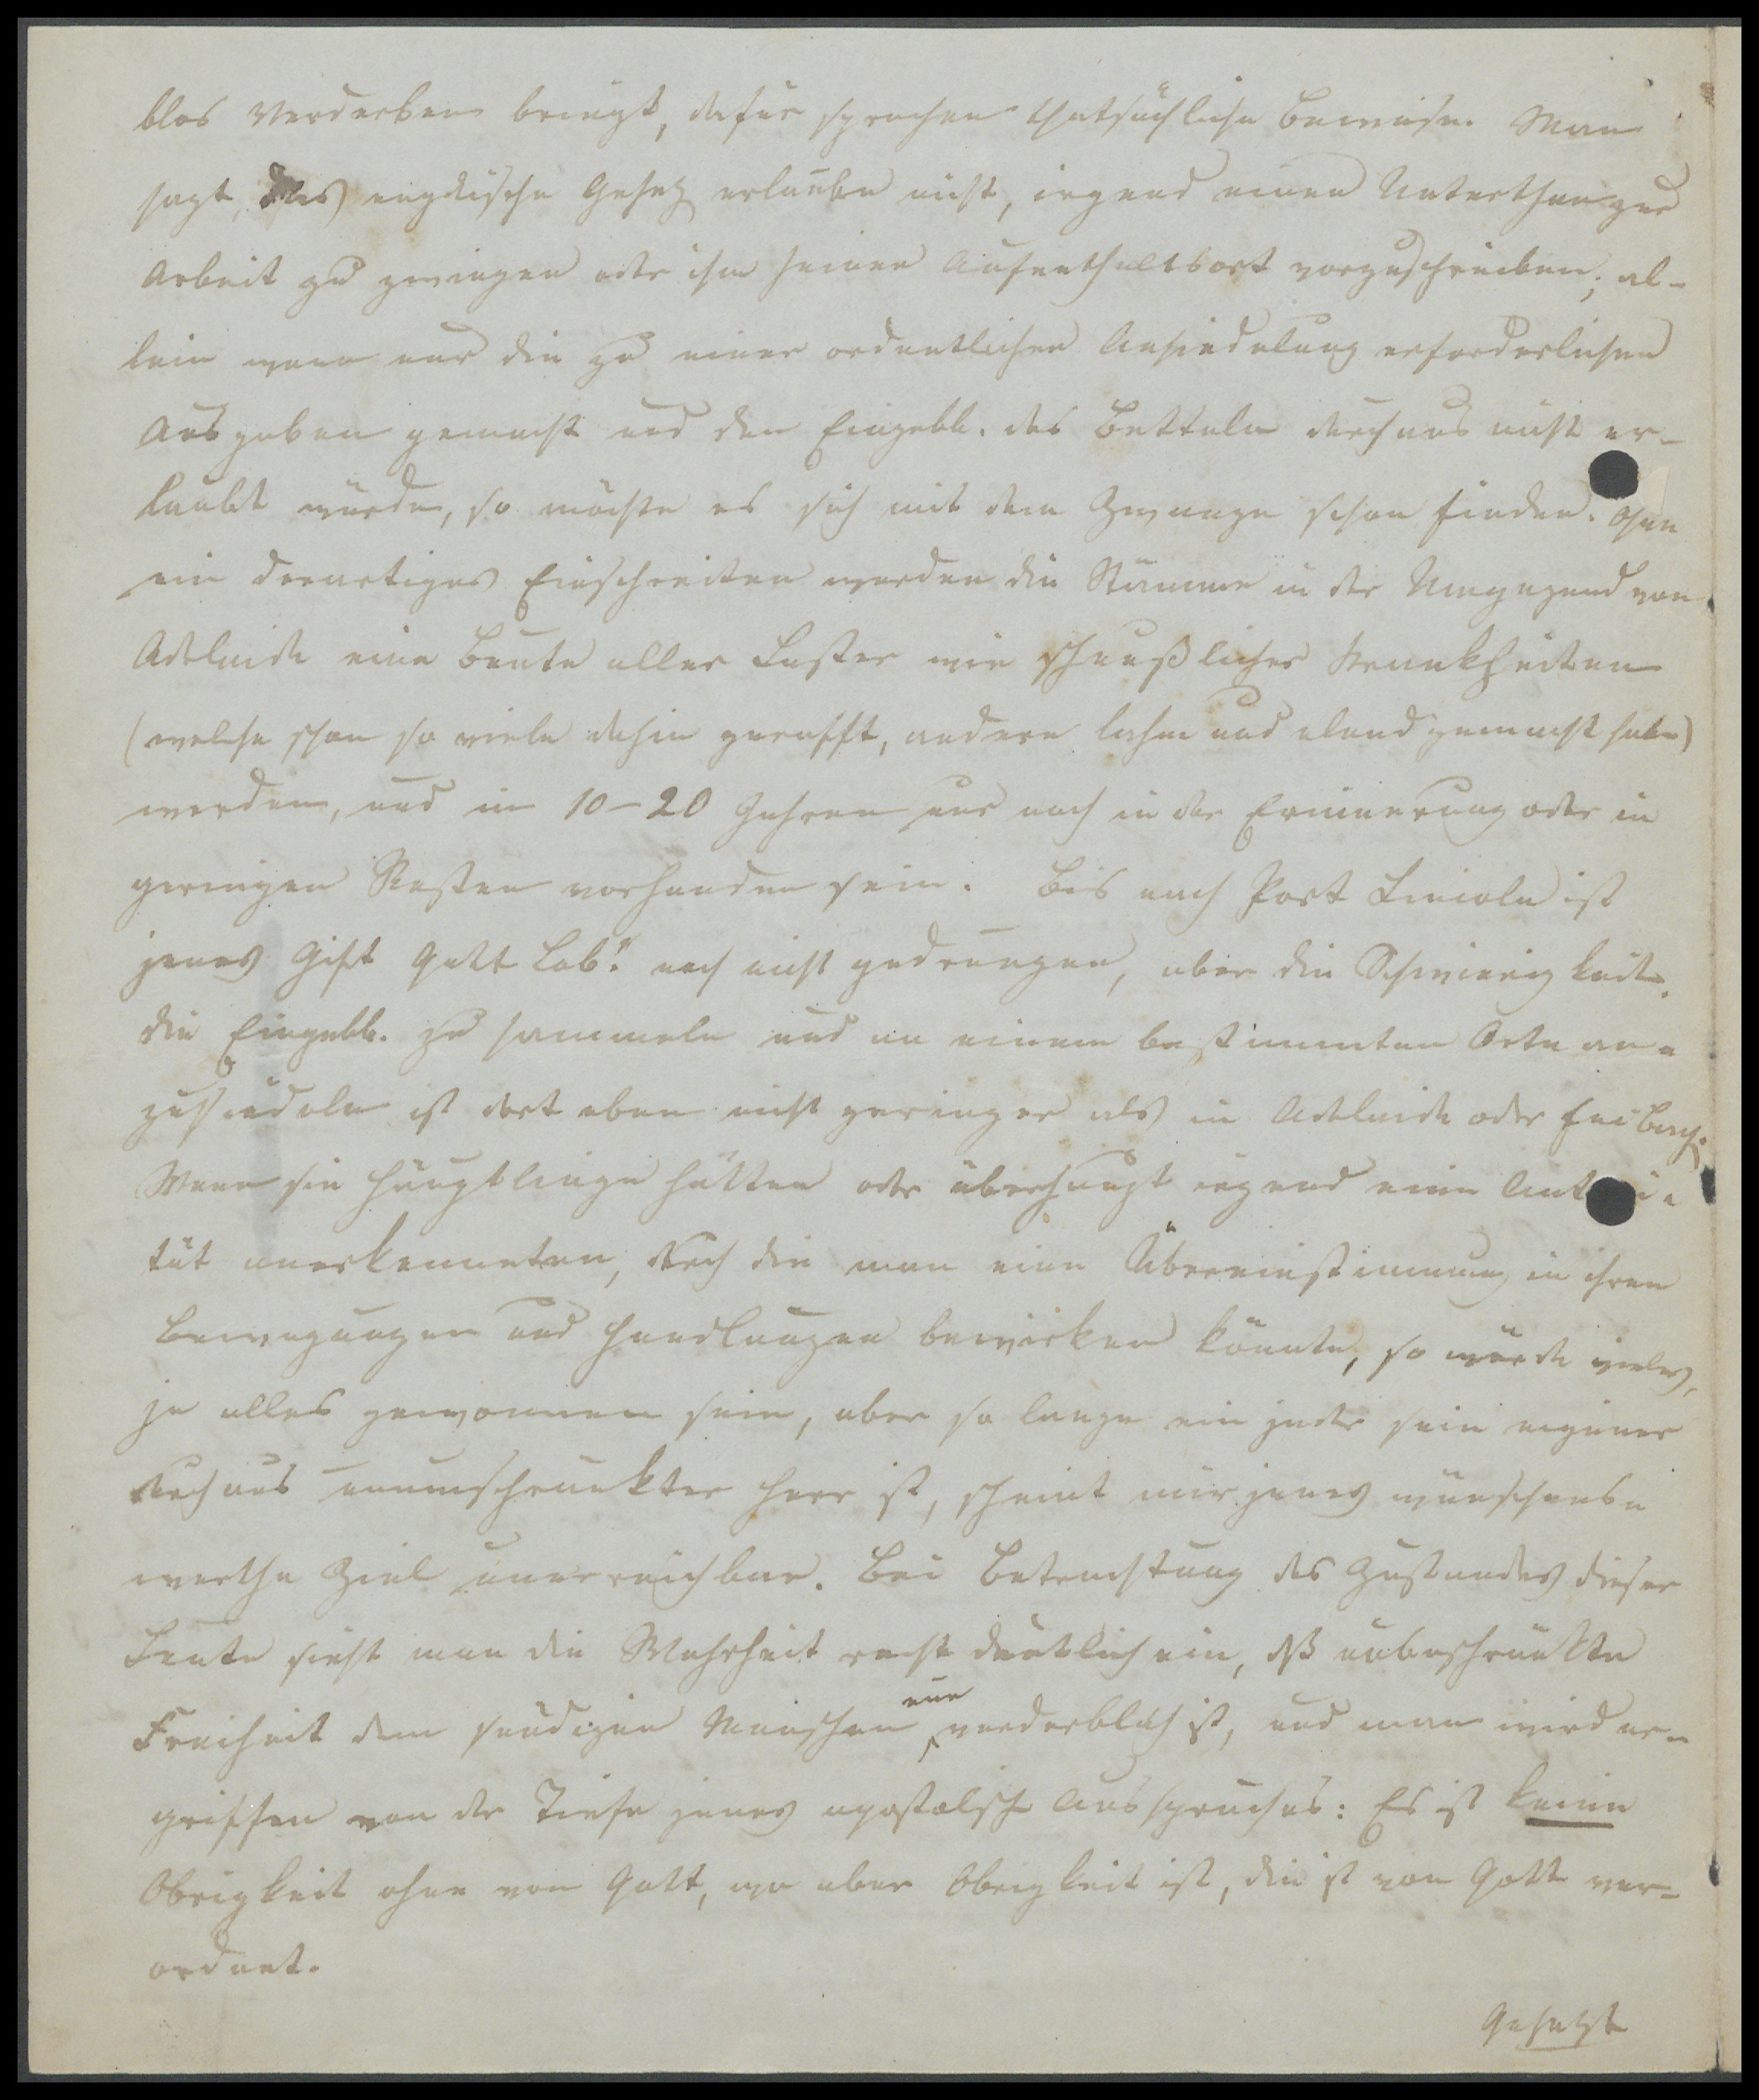 blos Verderben bringt, dafür sprechen thatsächliche Beweise. Man
sagt, das englische Gesetz erlaube nicht, irgend einen Unterthan zur
Arbeit zu zwingen oder ihm seinen Aufenthaltsort vorzuschreiben; al-
lein wenn nur die zu einer ordentlichen Ansiedelung erforderlichen
Ausgaben gemacht und den Eingebb. das Betteln durchaus nicht er-
laubt würde, so möchte es sich mit dem Zwange schon finden. Ohne
ein derartiges Einschreiten werden die Stämme in der Umgegend von
Adelaide eine Beute aller Laster wie scheußlicher Krankheiten
(welche schon so viele dahin gerafft, andere lahm und elend gemacht haben)
werden, und in 10-20 Jahren nur noch in der Erinnerung oder in
geringen Resten vorhanden sein. Bis nach Port Lincoln ist
jenes Gift Gott Lob! noch nicht gedrungen, aber die Schwierigkeit,
die Eingebb. zu sammeln und an einem bestimmten Orte an-
zusiedeln ist dort eben nicht geringer als in Adelaide oder Enc. Bay.
Wenn sie Häuptlinge hätten oder überhaupt irgend eine Autori-
tät anerkenneten, durch die man eine Übereinstimmung in ihren
Bewegungen und Handlungen bewirken könnte, so würde vieles,
ja alles gewonnen sein, aber so lange ein jeder sein eigener
durchaus unumschrankter Herr ist, scheint mir jenes wünschens-
werthe Ziel unerreichbar. Bei Betrachtung des Zustandes dieser
Leute sieht man die Wahrheit recht deutlich ein, dß unbeschränkte
Freiheit dem sündigen Menschen nur verderblich ist, und man wird er-
griffen von der Tiefe jenes apostolisch Ausspruches: Es ist keine
Obrigkeit ohne von Gott, wo aber Obrigkeit ist, die ist von Gott ver-
ordnet.
Gesetzt